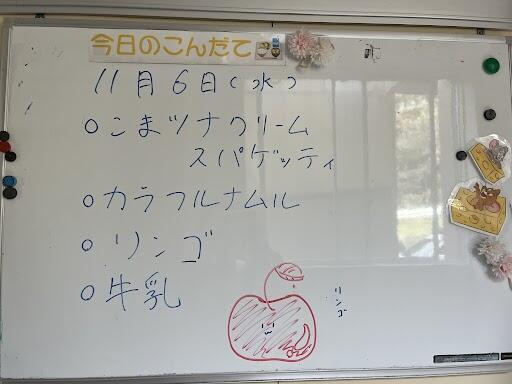 今日のこんだて
11月6日(水)
○こまツナクリーム
スパゲッティ
○カラフルナムル
○リンゴ
○牛乳
リンゴ